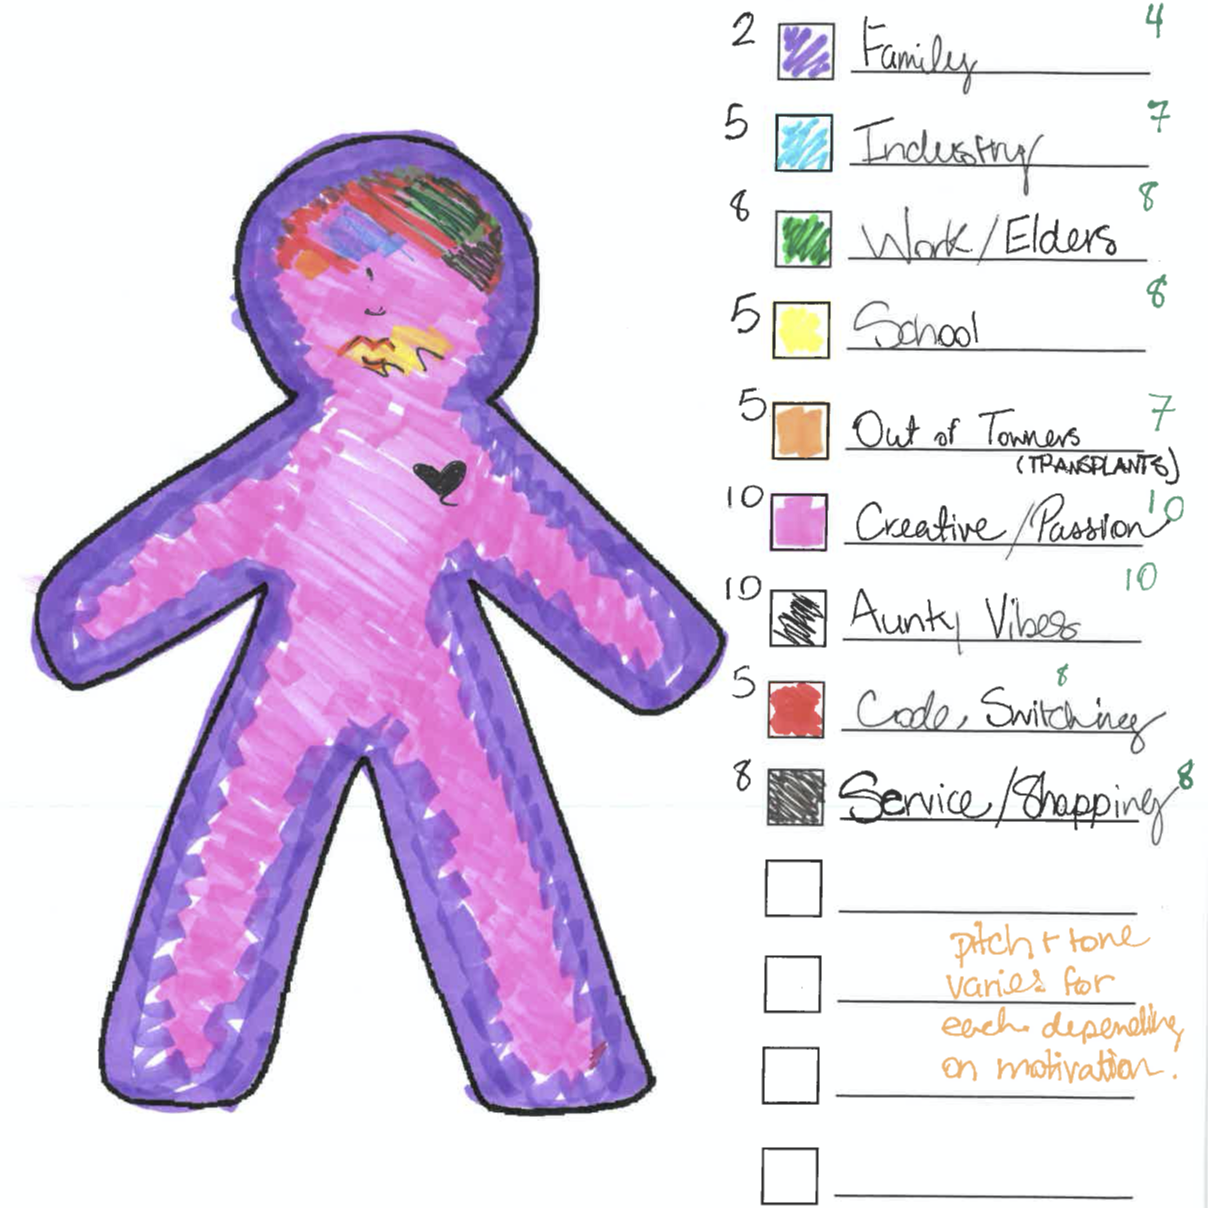 2 Family 4
5 Industry 7
8 Work/Elders 8
5 School 8
5 Out of Towners 7
(TRANSPLANTS)
10 Creative/Passion 10
10 Aunty Vibes 10
5 Code, Switching 8
8 Service/Shopping 8
pitch + tone
varies for
each depending
on motivation.